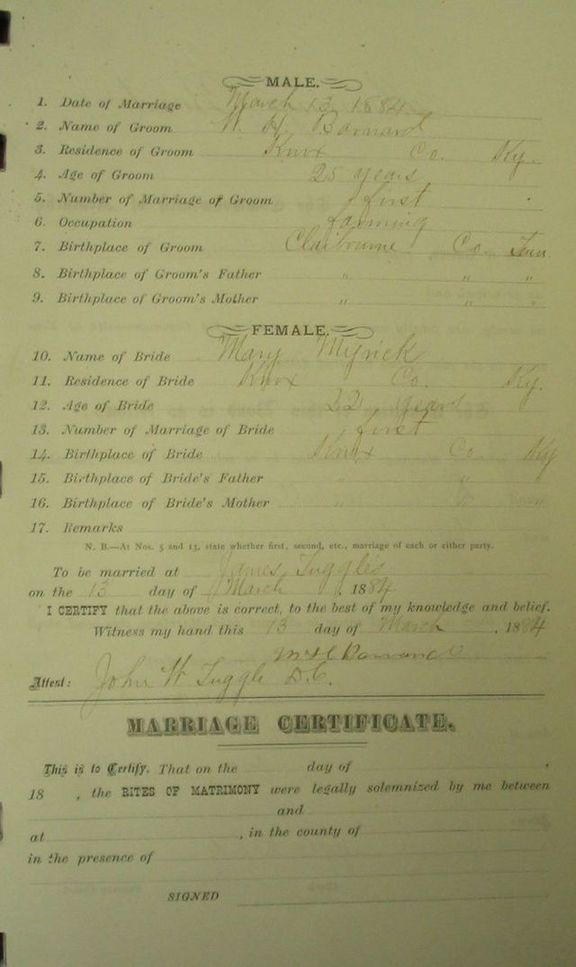 MALE.
1. Date of Marriage March 13 1884
2. Name of Groom W. H. Barnard
3. Residence of Groom Knox Co. Ky.
4. Age of Groom 25 years
5. Number of Marriage of Groom first
6. Occupation farming
7. Birthplace of Groom Claibourne Co. Tenn
8. Birthplace of Groom's Father " " "
9. Birthplace of Groom's Mother " " "
FEMALE.
10. Name of Bride Mary Myrick
11. Residence of Bride Knox Co. Ky.
12. Age of Bride 22 years
13. Number of Marriage of Bride first
14. Birthplace of Bride Knox Co Ky
15. Birthplace of Bride's Father " "
16. Birthplace of Bride's Mother "
17. Remarks
N. B.—At Nos. 5 and 13, state whether first, second, etc., marriage of each or either party.
To be married at James Tuggles
on the 13 day of March, 1884
I CERTIFY that the above is correct, to the best of my knowledge and belief.
Witness my hand this 13 day of March, 1884
Barnard
Attest: John W Tuggle D.C.
MARRIAGE CERTIFICATE.
This is to Certify, That on the day of
18 , the RITES OF MATRIMONY were legally solemnized by me between
and
at , in the county of
in the presence of
SIGNED